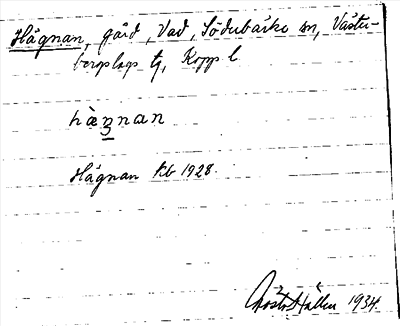 Hägnan, gård, Vad, Söderbärke sn, Väster-
bergslags tg, Kopp l.
hæŋnan
Hägnan Kb 1928.
Gösta Hallen 1934.